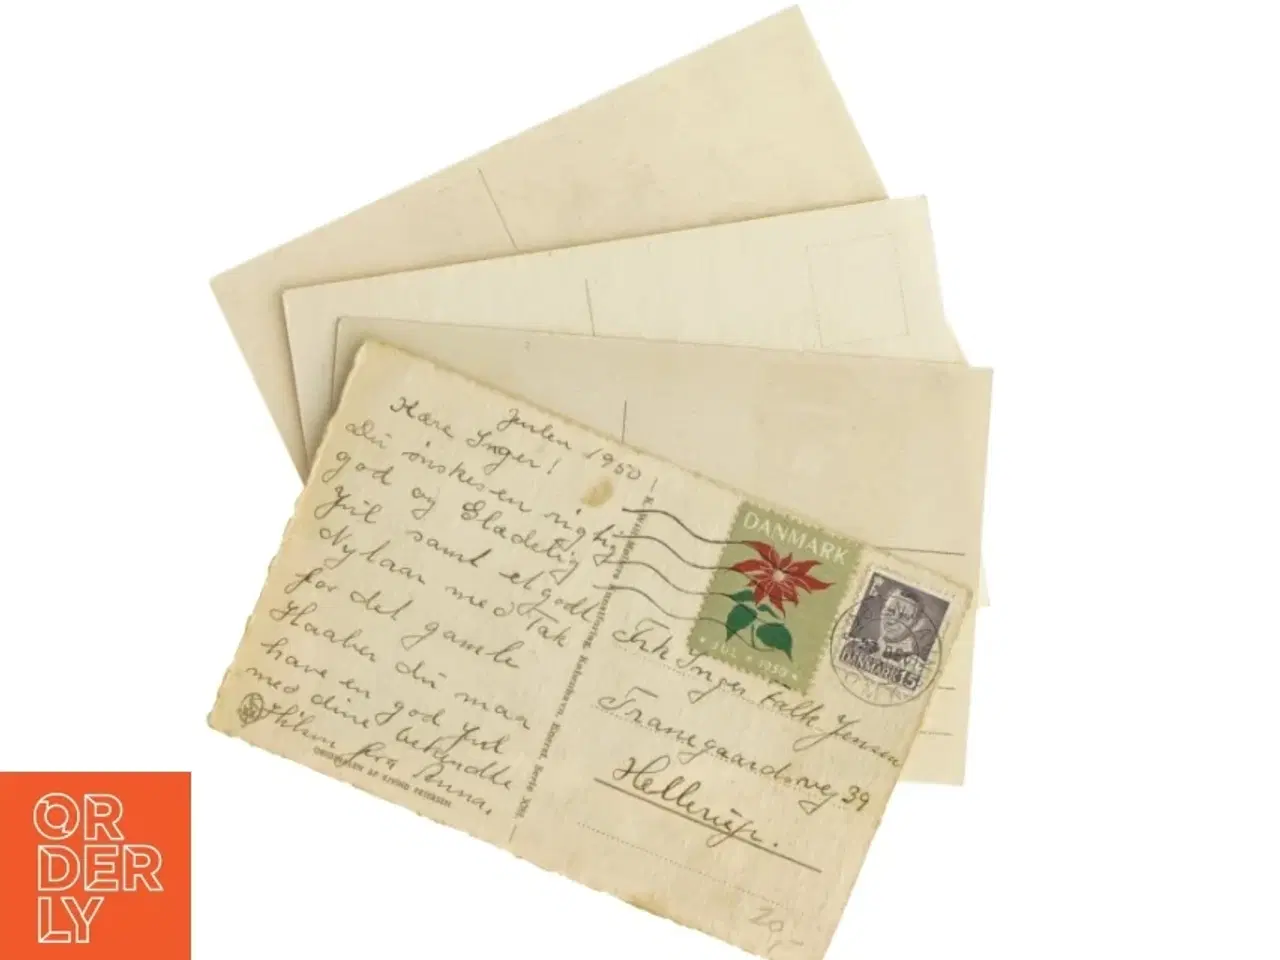 Julen 1950
Kære Inger!
Du ønskes en rigtig
god og Glædelig
Jul samt et godt
Nytaar med Tak
for det gamle
Haaber du maa
have en god Jul
med dine bekendte
Hilsen fra Anna.
ORIGINALEN AF EIVIND PETERSEN
København, Eneret. Serie
DANMARK
JUL 1950
DANMARK 15
Frk Inger Falk Jensen
Tranegaardsvej 39
Hellerup.
20,-
ORDERLY